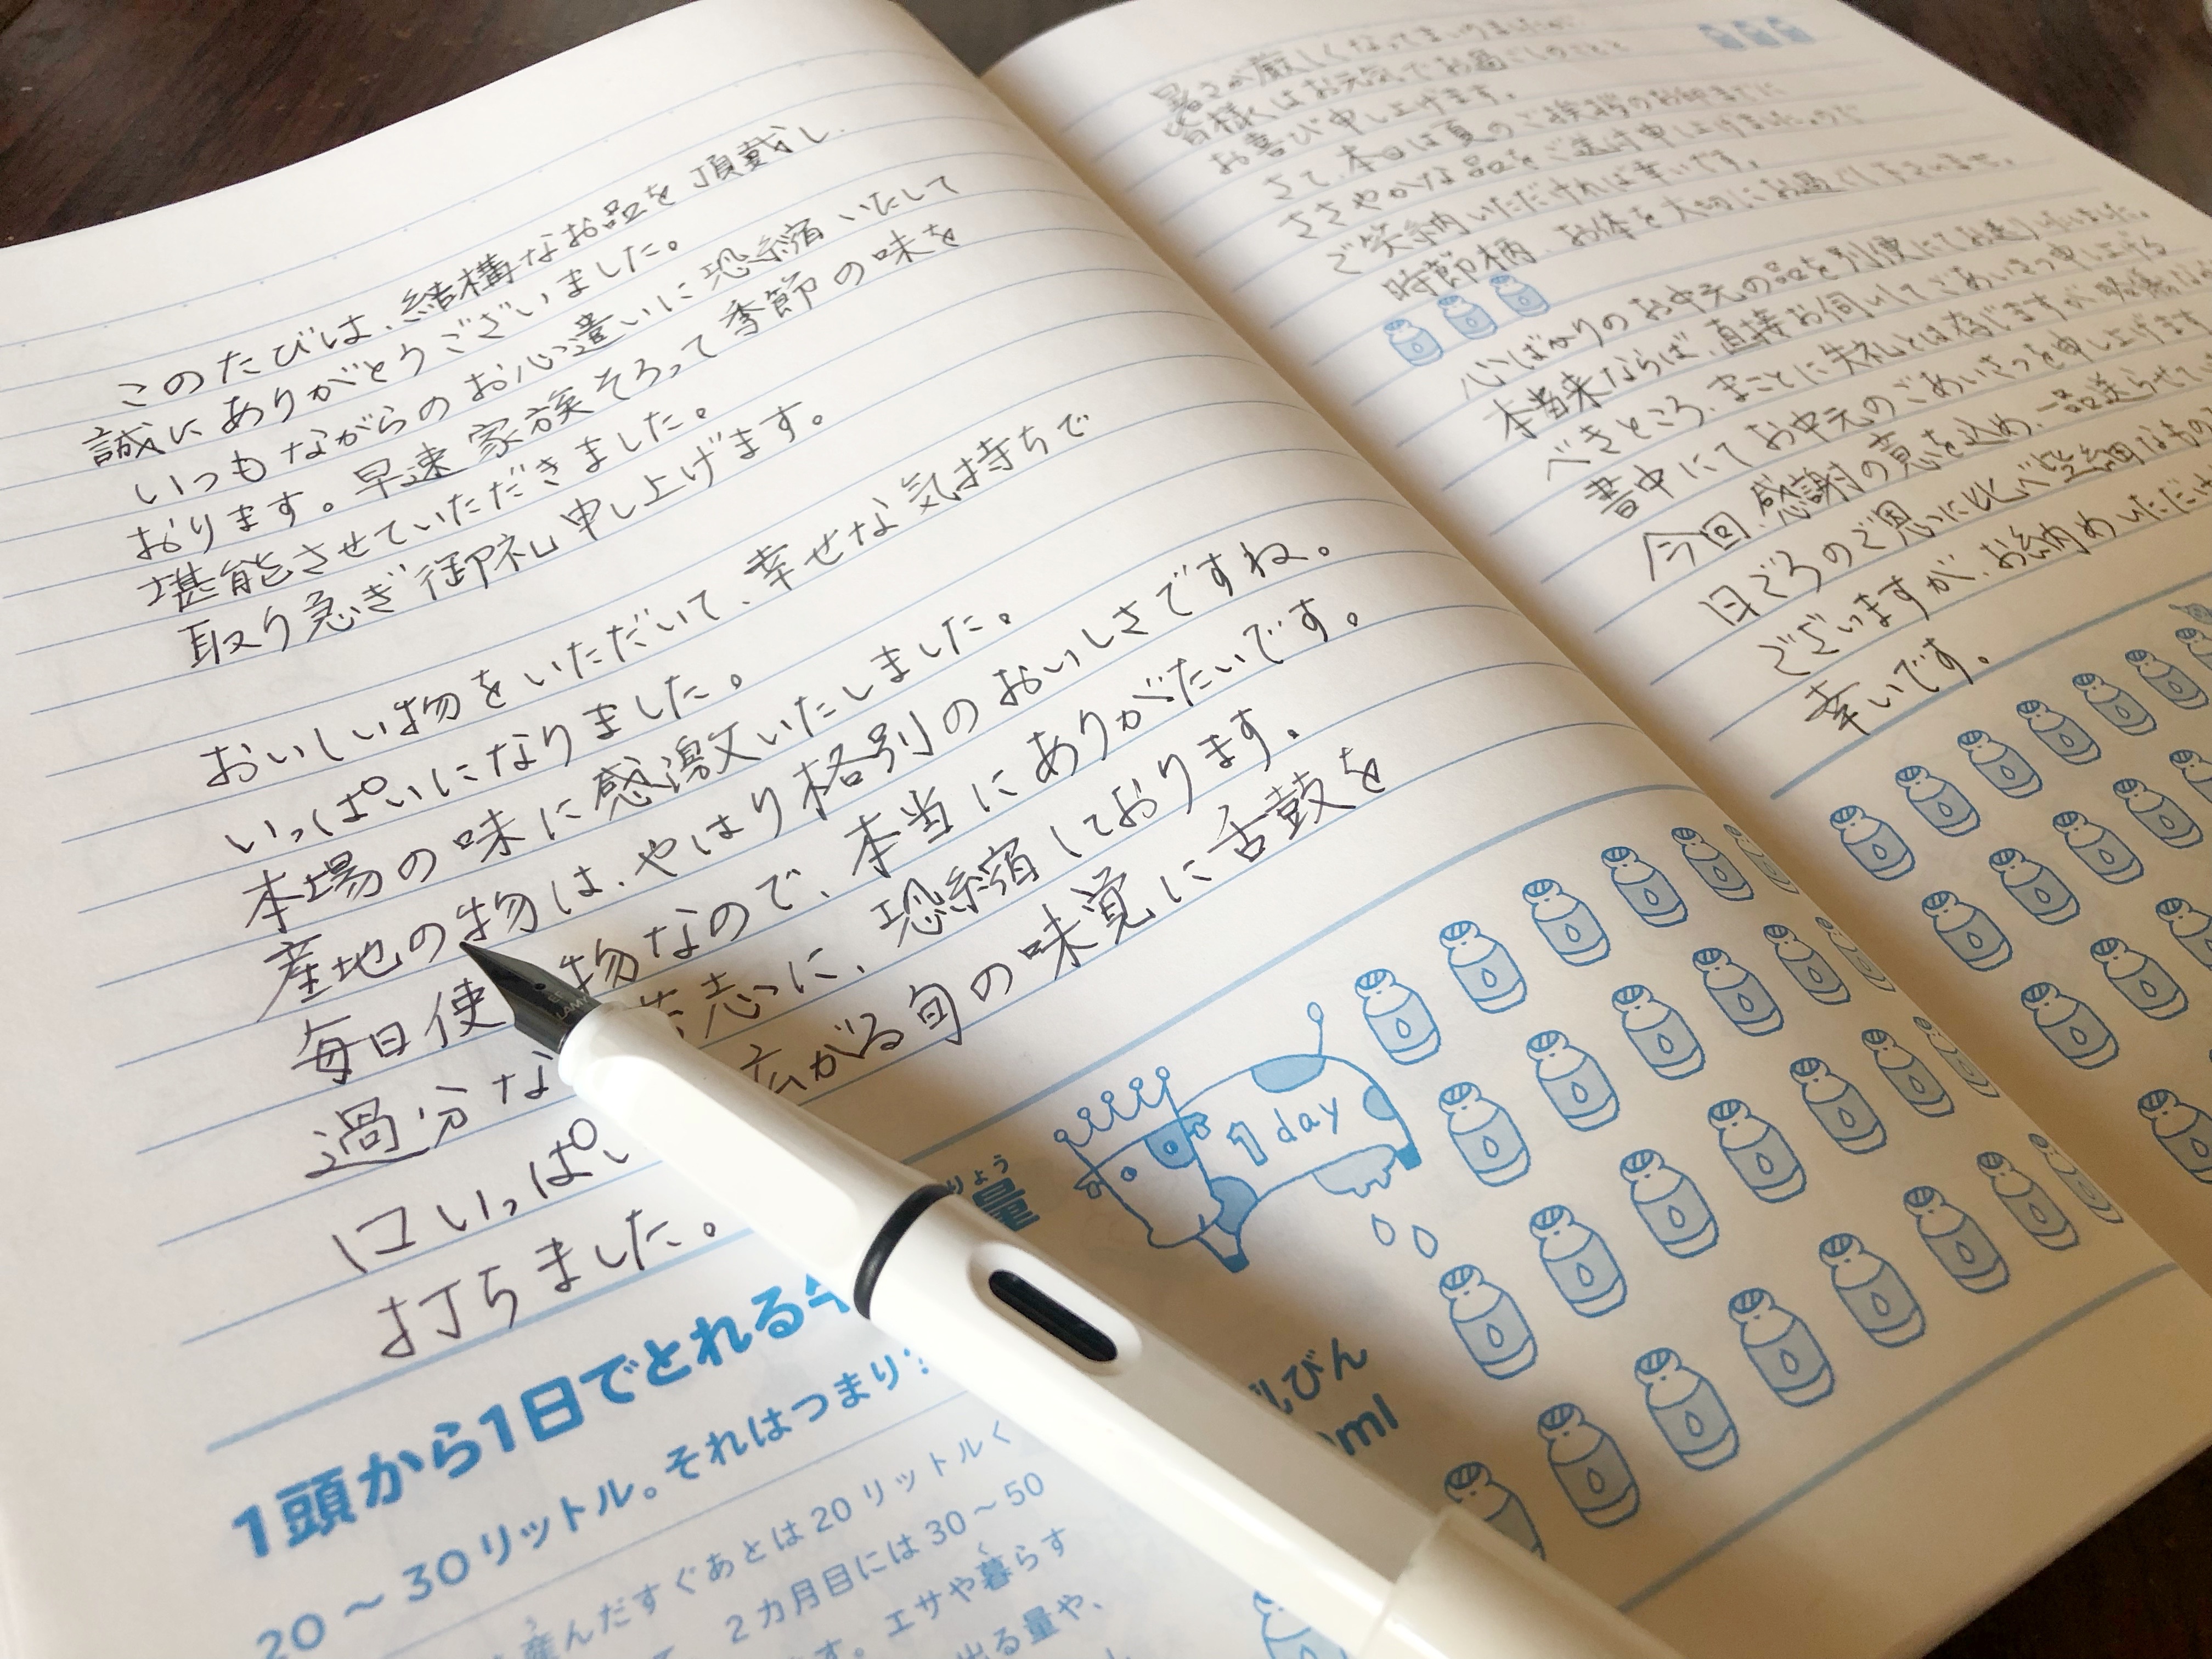 このたびは、結構なお品を頂戴し、
誠にありがとうございました。
いつもながらのお心遣いに恐縮いたして
おります。早速家族そろって季節の味を
堪能させていただきました。
取り急ぎ御礼申し上げます。
おいしい物をいただいて、幸せな気持ちで
いっぱいになりました。
本場の味に感激いたしました。
産地の物は、やはり格別のおいしさですね。
毎日使 物なので、本当にありがたいです。
過分な 志に、恐縮しております。
口いっぱい 広がる旬の味覚に舌鼓を
打ちました。
1頭から1日でとれる牛
りょう
量
20〜30リットル。それはつまり
う
産んだすぐあとは20リットルく
2カ月目には30〜50
く
す。エサや暮らす
出る量や、
1 day
乳びん
ml
LAMY
暑さが厳しくなってまいりましたが
皆様にはお元気でお過ごしのことと
お喜び申し上げます。
さて、本日は夏のご挨拶のお印までに
ささやかな品をご送付申し上げましたので
ご笑納いただければ幸いです。
時節柄、お体を大切にお過ごし下さいませ。
心ばかりのお中元の品を別便にてお送りいたしました。
本当来ならば、直接お伺いしてごあいさつ申し上げる
べきところ、まことに失礼とは存じますが、略儀なが
書中にてお中元のごあいさつを申し上げます
今回、感謝の意を込め、一品送らせてい
日ごろのご恩に比べ些細なもの
ございますが、お納めいただけ
幸いです。